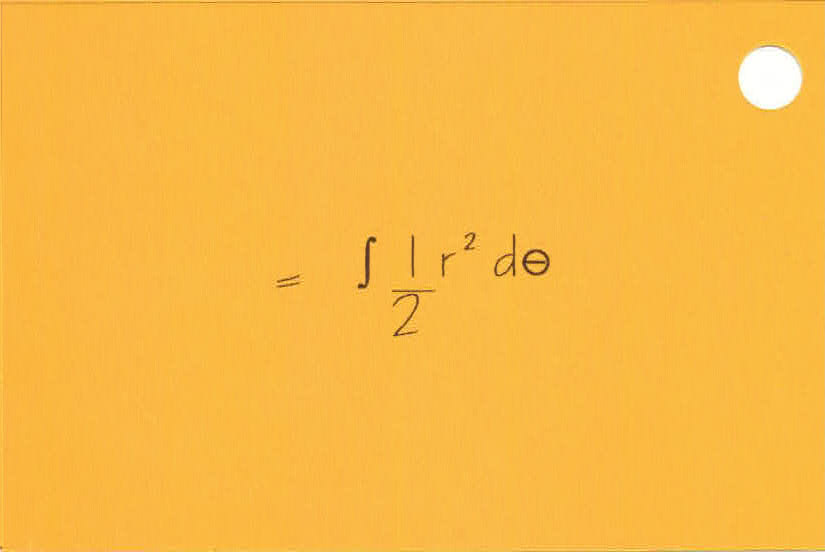 = ∫ 1/2 r² dθ